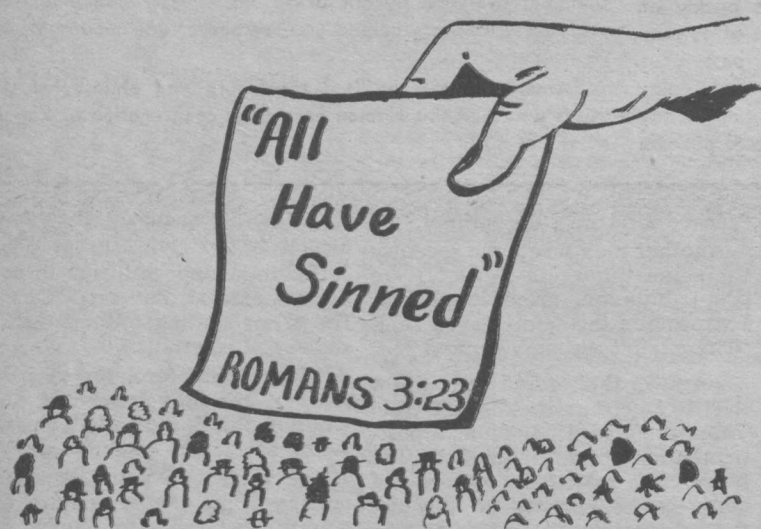 “All
Have
Sinned”
ROMANS 3:23